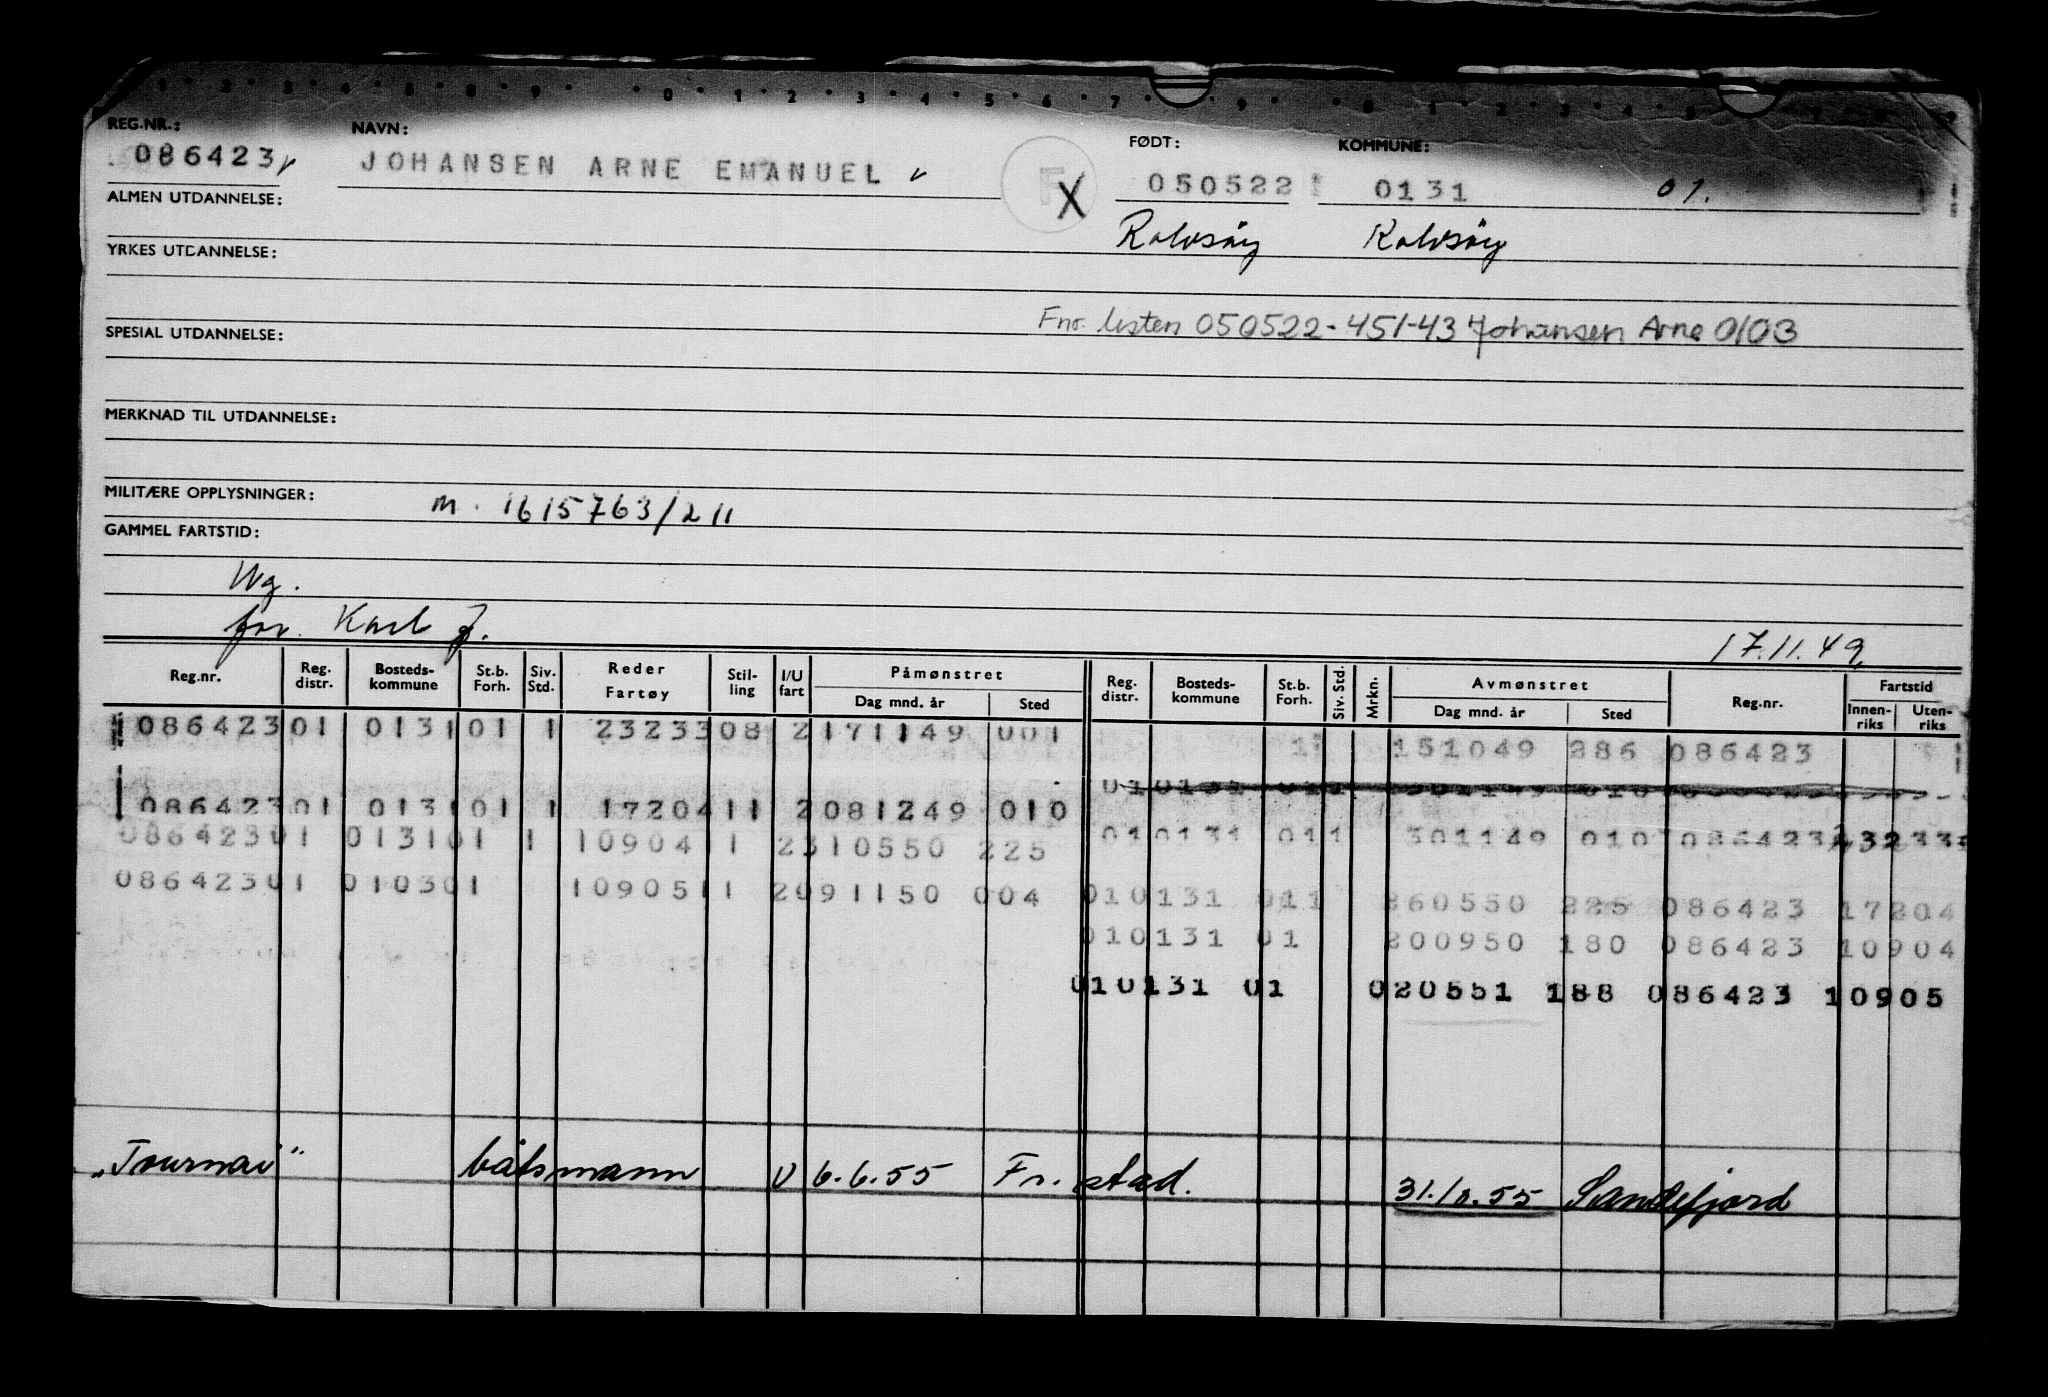 REG.NR.: NAVN: FØDT: KOMMUNE:
086423 JOHANSEN ARNE EMANUEL F X 050522 0131 01.
ALMEN UTDANNELSE: Rolvsøy Rolvsøy
YRKES UTDANNELSE:
Fnr. listen 050522-451-43 Johansen Arne 0103
SPESIAL UTDANNELSE:
MERKNAD TIL UTDANNELSE:
MILITÆRE OPPLYSNINGER: m. 1615763/211
GAMMEL FARTSTID:
Ug.
for. Karl J. 17.11.49
Reg.nr. Reg. distr. Bosteds-kommune St.b. Forh. Siv. Std. Reder Fartøy Stil-ling I/U fart Påmønstret Dag mnd. år Sted Reg. distr. Bosteds-kommune St.b. Forh. Siv. Std. Mrkn. Avmønstret Dag mnd. år Sted Reg.nr. Fartstid Innen-riks Uten-riks
086423 01 0131 01 1 23233 08 2 171149 001
1 151049 286 086423
01 0131 011 301149 010
086423 01 0131 01 1 17204 11 2 081249 010
01 0131 011 301149 010 086423 23233
086423 01 0131 01 1 10904 11 2 310550 225
086423 01 0103 01 10905 11 2 091150 004
01 0131 011 260550 225 086423 17204
01 0131 01 200950 180 086423 10904
01 0131 01 020551 188 086423 10905
"Tournai" båtsmann U 6.6.55 Fr.stad. 31.10.55 Sandefjord